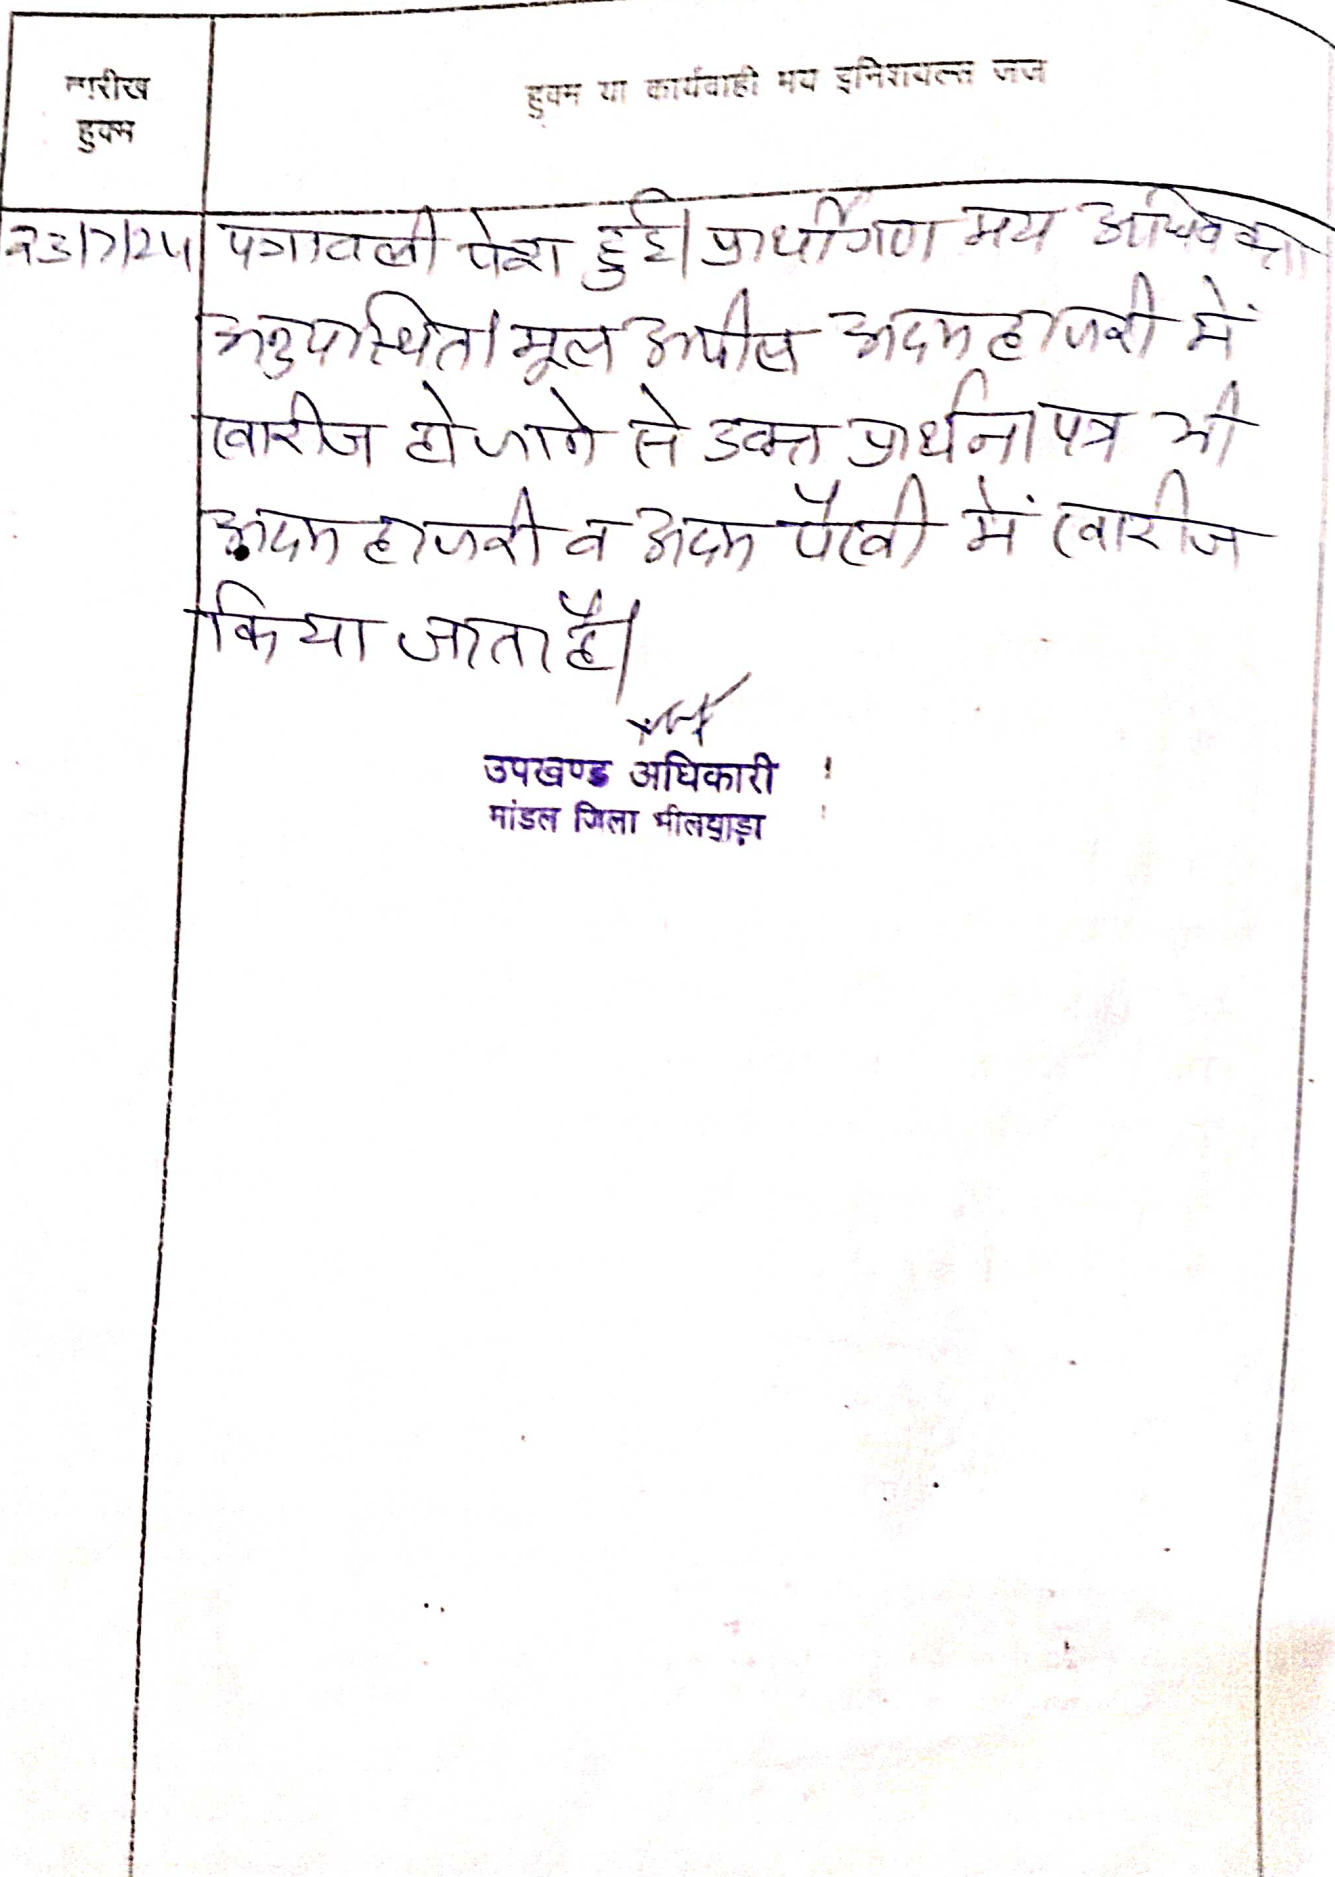 तारीख
हुक्म
हुक्म या कार्यवाही मय इनिशयल्स जज
23/7/24 पत्रावली पेश हुई। प्रार्थीगण मय अधिवक्ता
अनुपस्थित। मूल अपील अदम हाजरी में
खारीज हो जाने से उक्त प्रार्थना पत्र भी
अदम हाजरी व अदम पैरवी में खारीज
किया जाता है।
उपखण्ड अधिकारी
मांडल जिला भीलवाड़ा